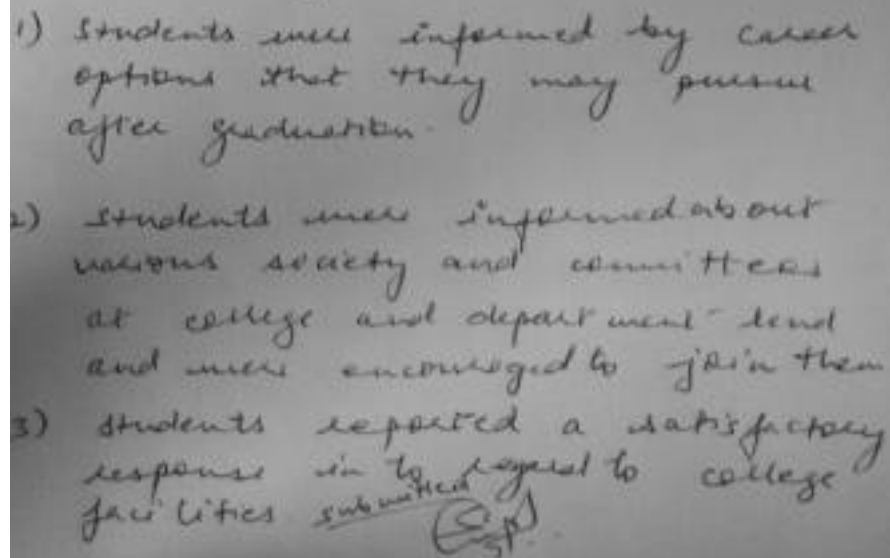 1) Students were informed by career
options that they may pursue
after graduation.
2) Students were informed about
various society and committees
at college and department lend
and were encouraged to join them
3) Students reported a satisfactory
response in to regard to college
facilities submitted